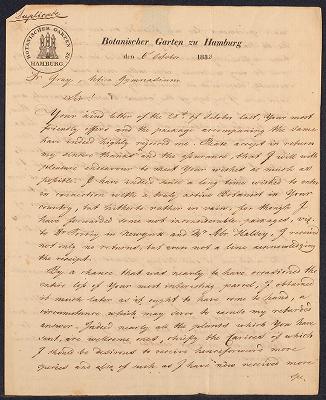 Duplicate
BOTANISCHER GARTEN ZU
HAMBURG
Botanischer Garten zu Hamburg
den 6 October 183
Dr. Gray, Utica Gymnasium
Sir!
Your kind letter of the 28th of October last, Your most
friendly offers and the package accompanying the same
have indeed highly rejoiced me. Please accept in return
my sincere thanks and the assurance, that I will with
pleasure endeavour to meet Your wishes as much as
possible. I have indeed since a long time wished to enter
in connection with a truly active Botanist in Your
country, but hitherto rather in vain; for though I
have forwarded some not inconsiderable packages, viz.
to Dr Torrey in Newyork and Mr Abr Halsey, I received
not only no returns, but even not a line acknowledging
the receipt.
By a chance that was nearly to have occasioned the
entire loss of Your most interesting parcel, I obtained
it much later as it ought to have come to hand, a
circumstance which may serve to excuse my retarded
answer. Indeed nearly all the plants which You have
sent, are welcome ones, chiefly the Carices of which
I should be desirous to receive henceforward more
species and also of such as I have now received more